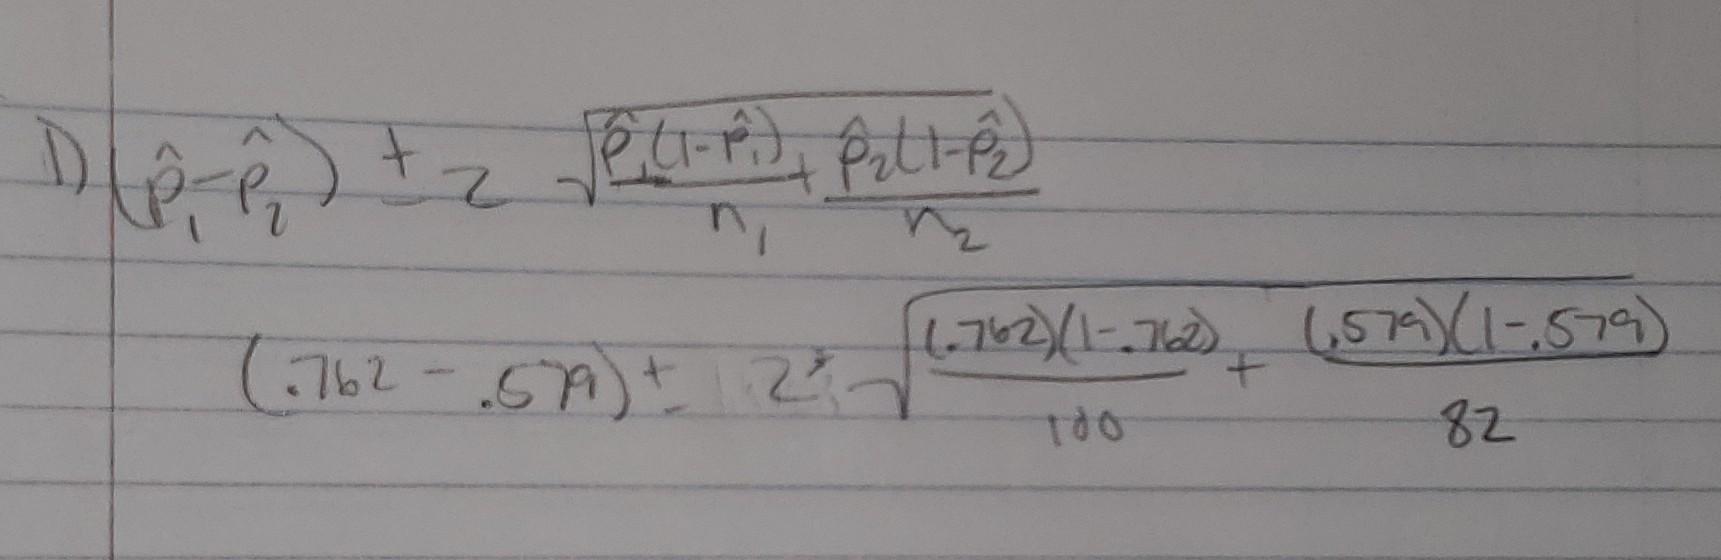 1) (p̂₁-p̂₂) ± z √(p̂₁(1-p̂₁)/n₁ + p̂₂(1-p̂₂)/n₂)
(.762 - .579) ± z* √((.762)(1-.762)/100 + (.579)(1-.579)/82)